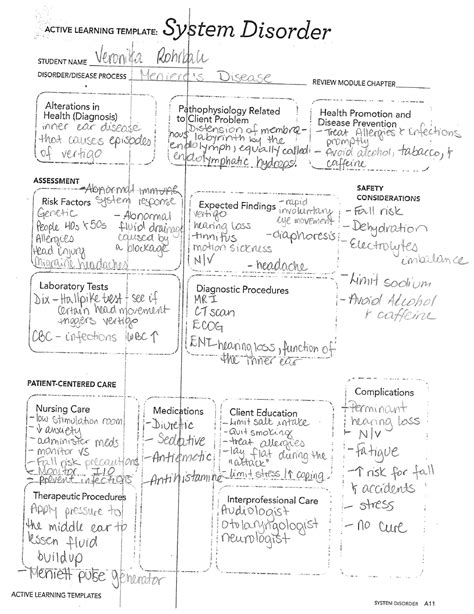 ACTIVE LEARNING TEMPLATE: System Disorder
STUDENT NAME Veronika
DISORDER/DISEASE PROCESS Meniere's Disease
REVIEW MODULE CHAPTER
Alterations in
Health (Diagnosis)
inner ear disease
that causes episodes
of vertigo
Pathophysiology Related
to Client Problem
Distension of membra-
nous labyrinth by the
endolymph, equally called
endolymphatic hydrops.
Health Promotion and
Disease Prevention
- Treat Allergies & infections
promptly
- Avoid alcohol, tabacco, &
caffeine
ASSESSMENT
SAFETY
CONSIDERATIONS
Risk Factors
- Abnormal immune
system response
Genetic
People 40s & 50s
Allergies
Head injury
Migraine headaches
- Abnormal
fluid drainage
caused by
a blockage
Expected Findings
vertigo
hearing loss
tinnitus
motion sickness
N/V
- rapid
involuntary
eye movement
- diaphoresis
- headache
- Fall risk
- Dehydration
- Electrolytes
imbalance
- Limit sodium
- Avoid Alcohol
& caffeine
Laboratory Tests
Dix-Hallpike test - see if
certain head movement
triggers vertigo
CBC - infections WBC ↑
Diagnostic Procedures
MRI
CT scan
ECOG
ENT-hearing loss, function of
the inner ear
PATIENT-CENTERED CARE
Nursing Care
- low stimulation room
- ↓ anxiety
- administer meds
- monitor VS
- Fall risk precautions
- Monitor I & O
- Prevent infections
Medications
- Diuretic
- Sedative
- Antiemetic
- Antihistamine
Client Education
- Limit salt intake
- Quit smoking
- treat allergies
- lay flat during the
"attack"
- limit stress / ↑ coping
Complications
- Perminant
hearing loss
- N/V
- fatigue
- ↑ risk for fall
& accidents
- stress
- no cure
Therapeutic Procedures
Apply pressure to
the middle ear to
lessen fluid
buildup
- Meniett pulse generator
Interprofessional Care
Audiologist
Otolaryngologist
neurologist
ACTIVE LEARNING TEMPLATES
SYSTEM DISORDER A11